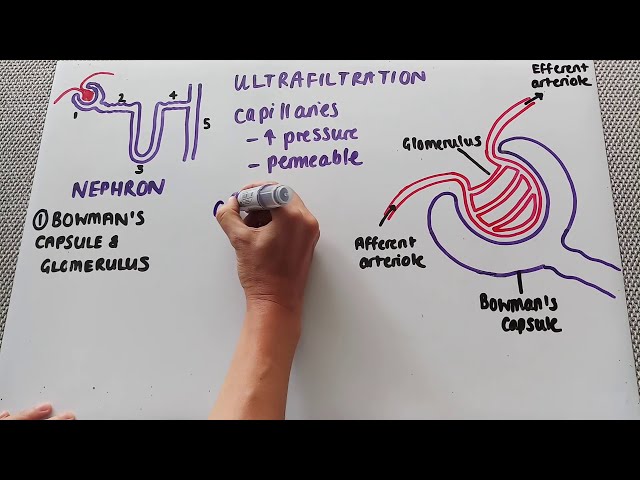 1
2
3
4
5
NEPHRON
① BOWMAN'S
CAPSULE &
GLOMERULUS
ULTRAFILTRATION
Capillaries
- ↑ pressure
- permeable
Efferent
arteriole
Glomerulus
Afferent
arteriole
Bowman's
Capsule